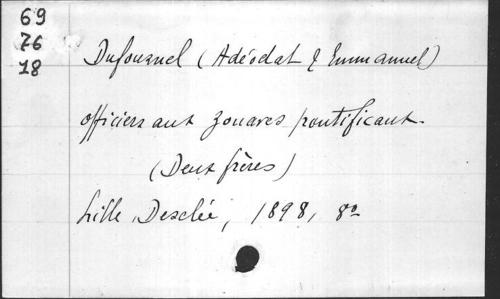 69
76
18
Dufournel (Adéodat & Emmanuel)
officiers aux zouaves pontificaux.
(Deux frères)
Lille, Desclée, 1898, 8º